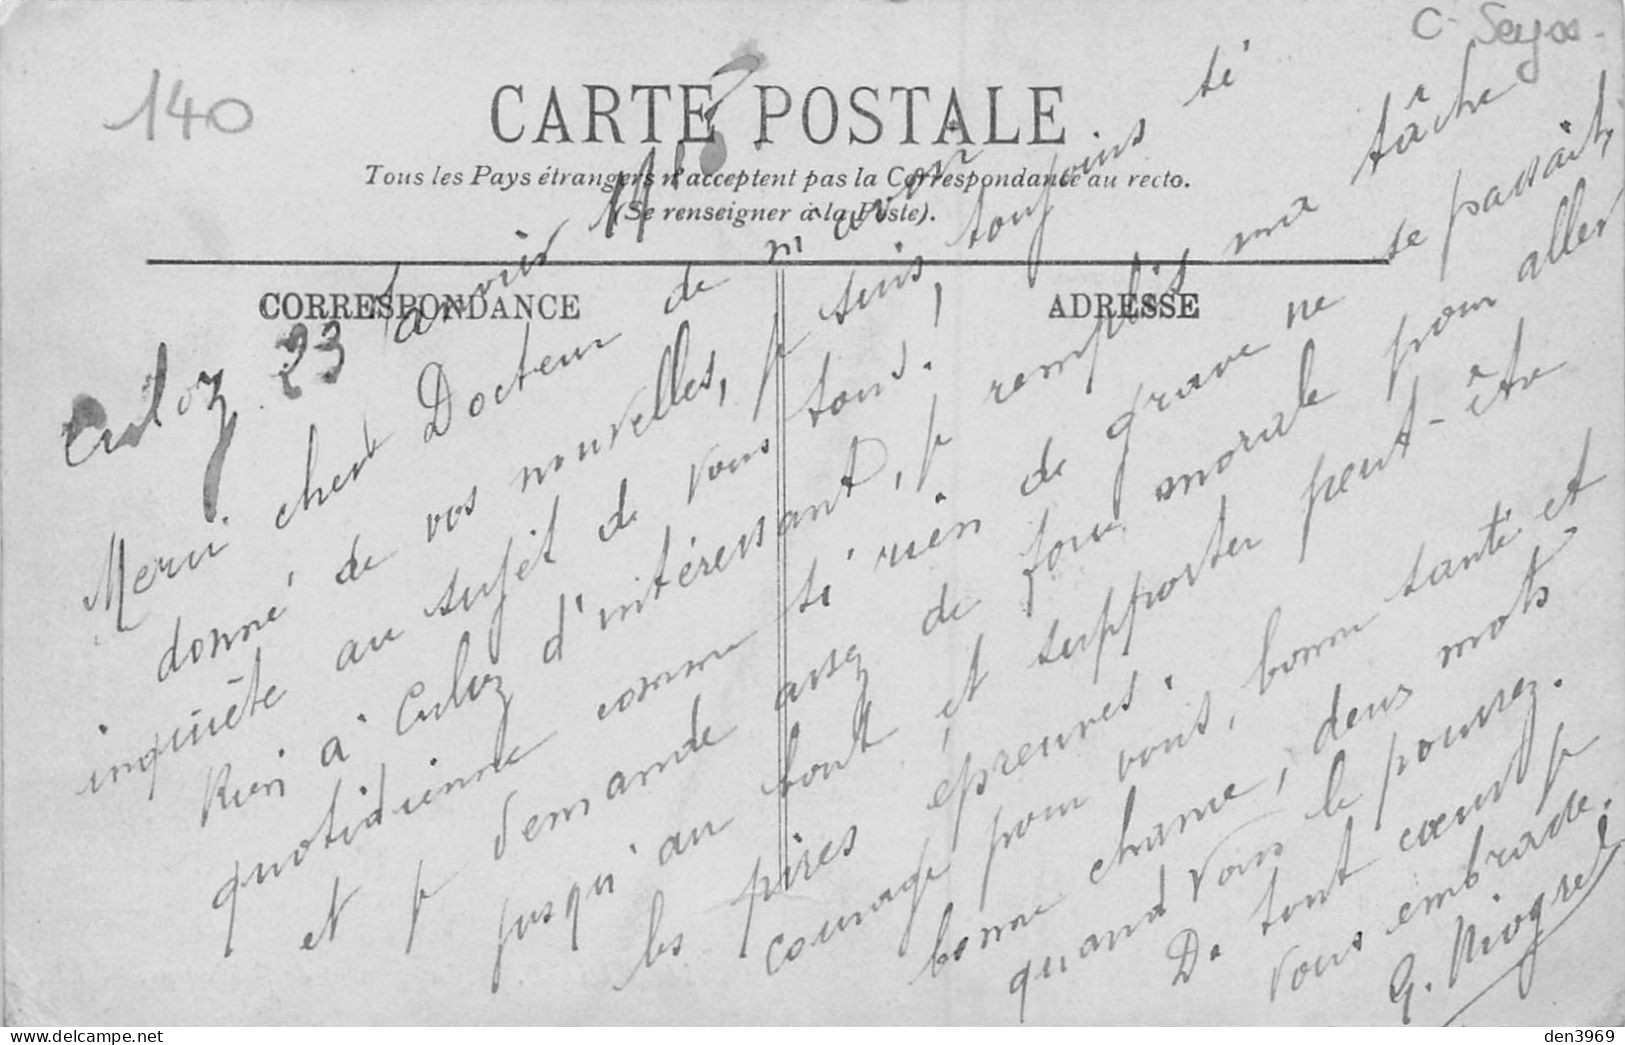 C. Seyss.
140
CARTE POSTALE
Tous les Pays étrangers n'acceptent pas la Correspondance au recto.
(Se renseigner à la Poste).
CORRESPONDANCE
ADRESSE
Culoz 23 Janvier 1915
Merci cher Docteur de m'avoir
donné de vos nouvelles, je suis toujours si
inquiète au sujet de vous tous!
Rien à Culoz d'intéressant, je remplis ma tâche
quotidienne comme si rien de grave ne se passait,
et je demande assez de force morale pour aller
jusqu'au bout et supporter peut-être
les pires épreuves.
Courage pour vous, bonne santé et
bonne chance, deux mots
quand vous le pouvez.
De tout cœur je
vous embrasse.
G. Niogret
den3969